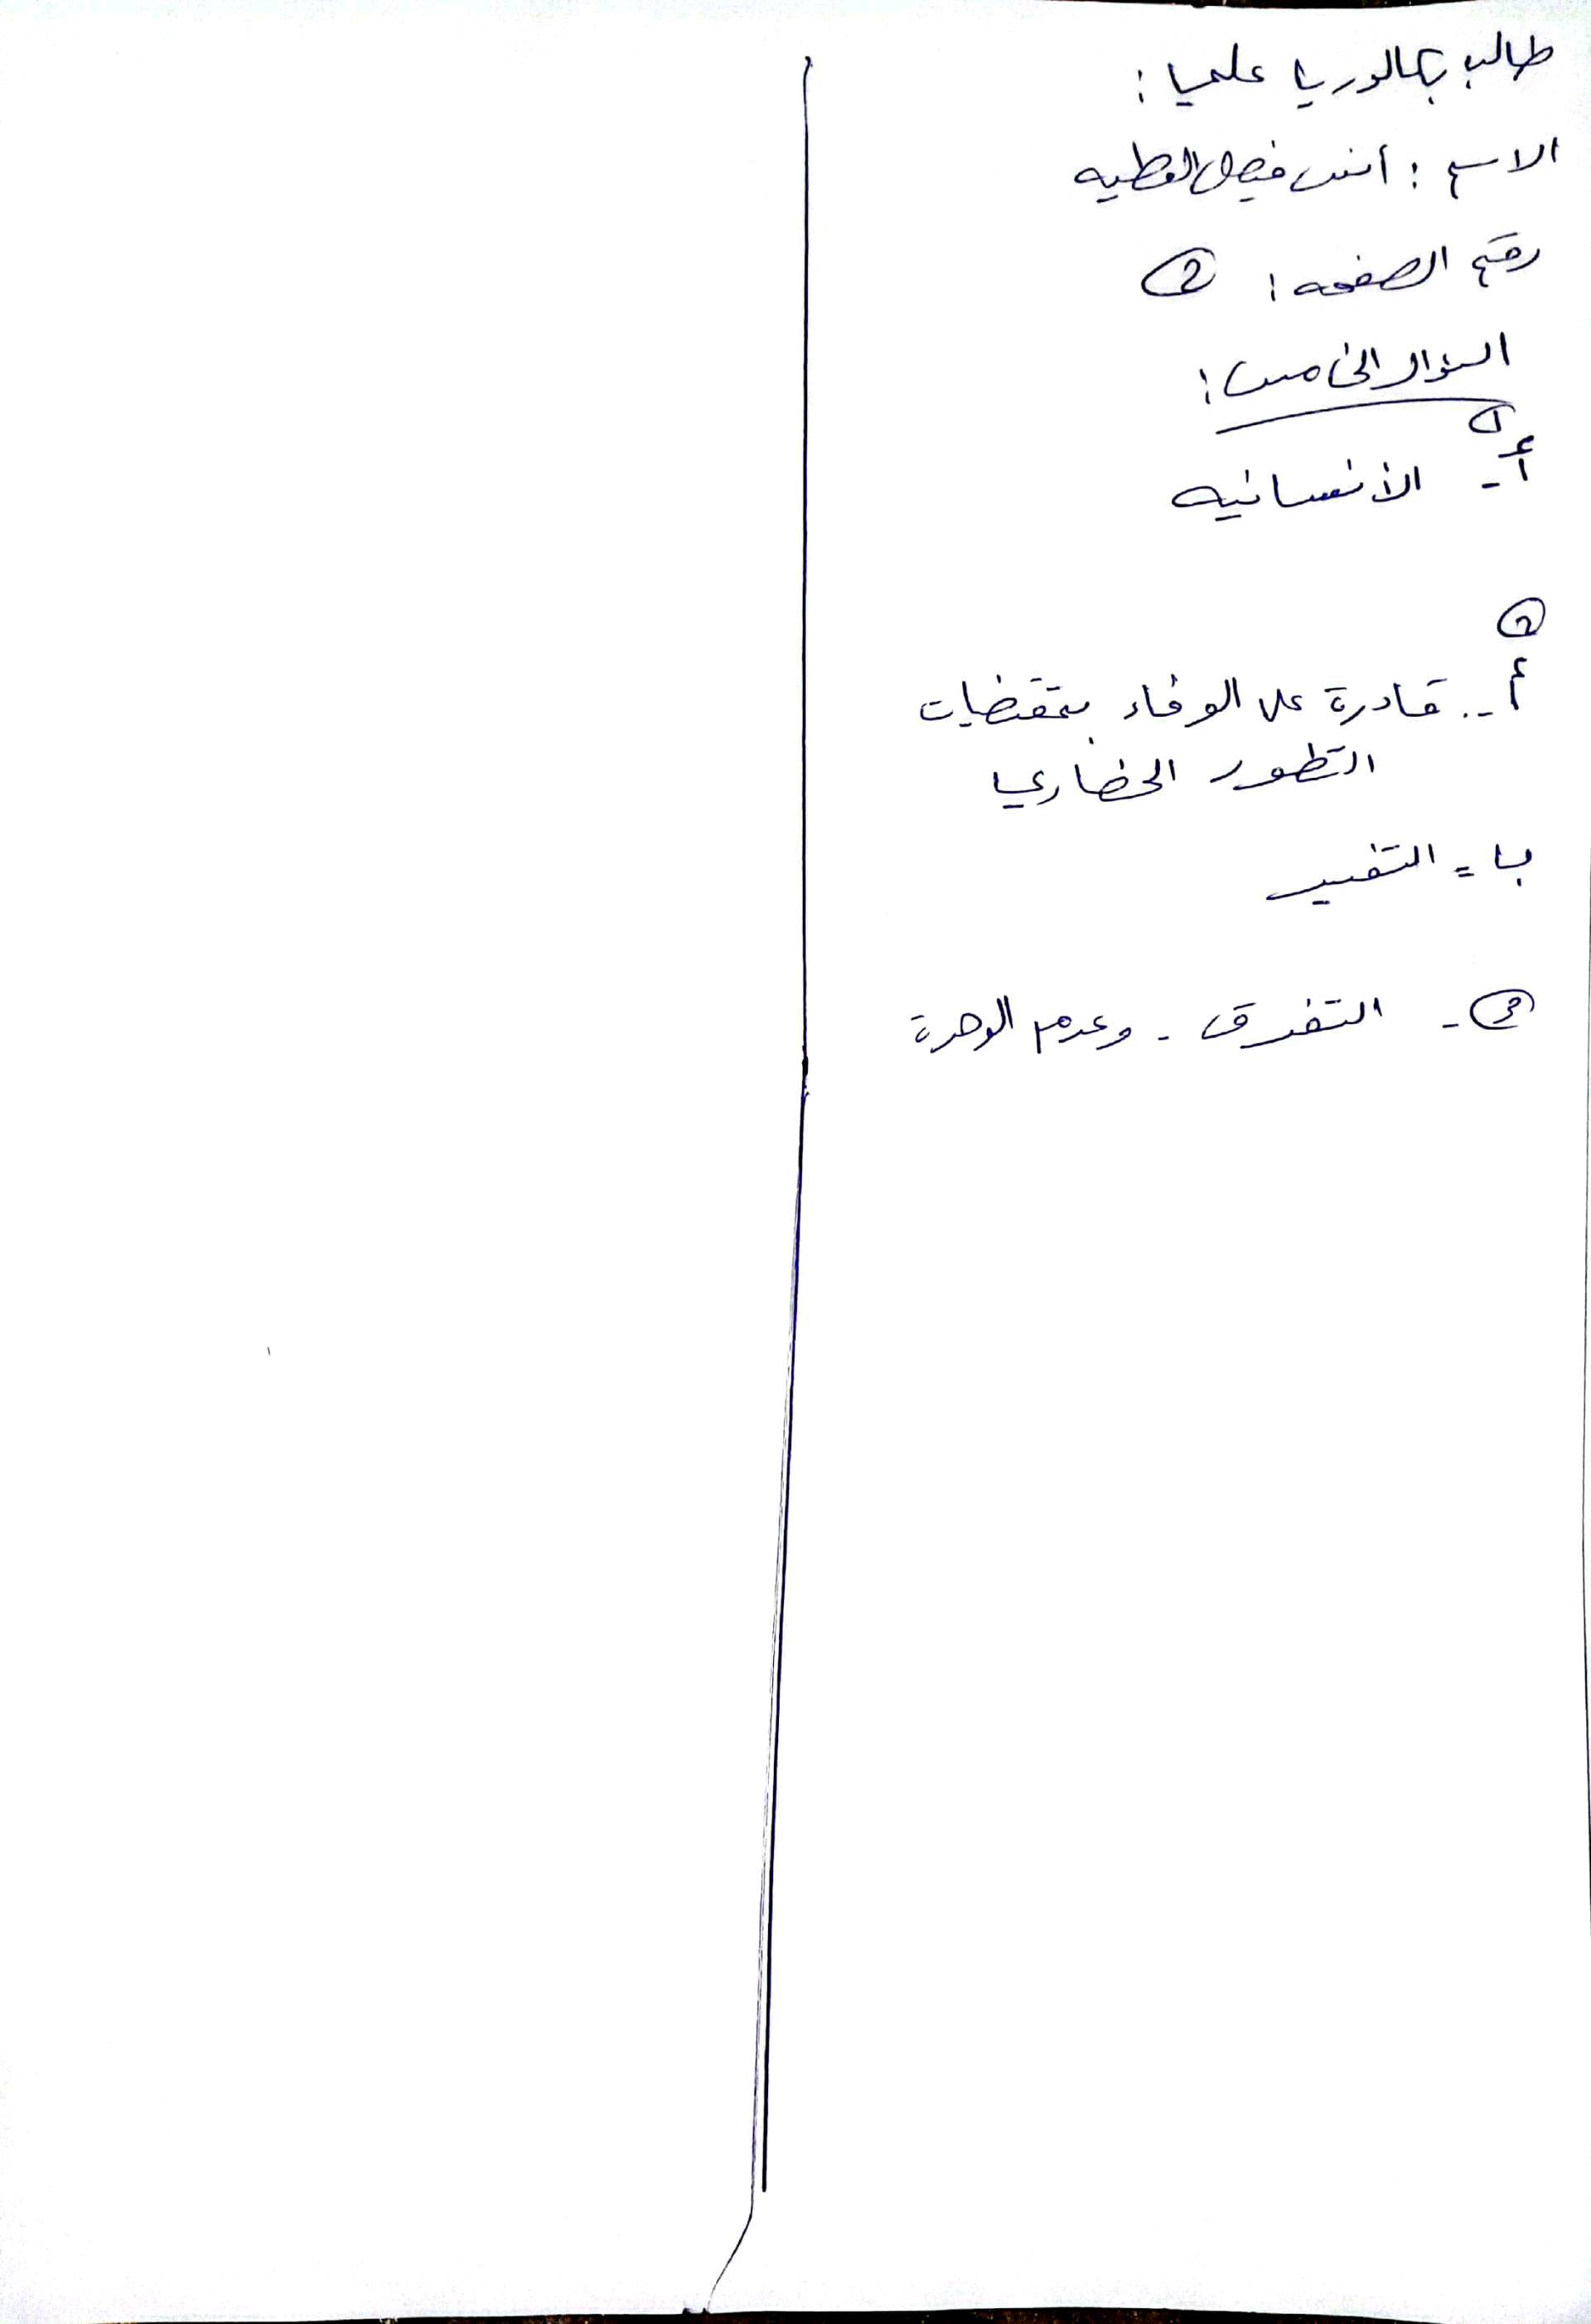 طالب بكالوريا علمي :
الاسم : أنس فيصل العطيه
رقم الصفحه : 2
السؤال الخامس :
1
أ - الأنسانيه
2
أ - قادرة على الوفاء بمقتضيات
التطور الحضاري
ب = التغيير
3 - التفرق - وعدم الوحدة